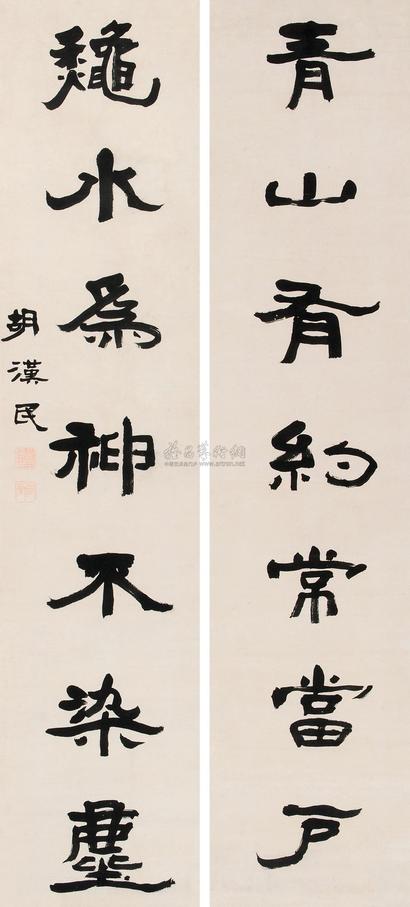 青山有約常當戶
龝水爲神不染塵
胡漢民
雅昌藝術網
www.artron.net